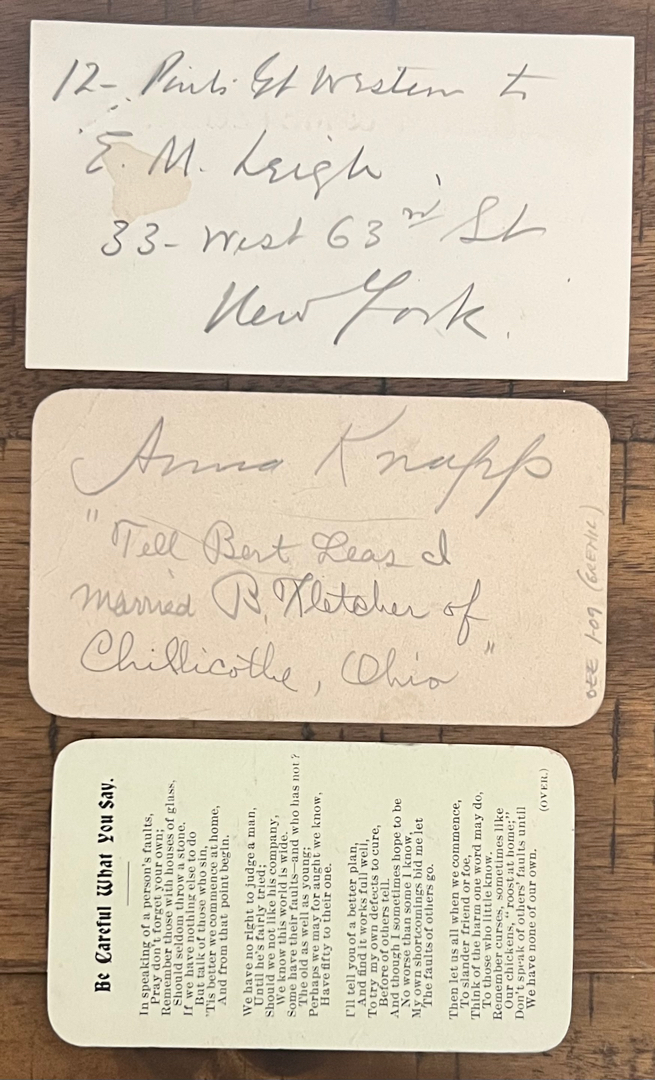 12- Pints Gt Western to
E. M. Leigh,
33- West 63rd St
New York.
Anna Knapp
"Tell Bert Leas I
married B. Fletcher of
Chillicothe, Ohio"
Be Careful What You Say.
In speaking of a person's faults,
Pray don't forget your own;
Remember those with houses of glass,
Should seldom throw a stone.
If we have nothing else to do
But talk of those who sin,
'Tis better we commence at home,
And from that point begin.
We have no right to judge a man,
Until he's fairly tried;
Should we not like his company,
We know this world is wide.
Some have their faults—and who has not?
The old as well as young;
Perhaps we may for aught we know,
Have fifty to their one.
I'll tell you of a better plan,
And find it works full well,
To try my own defects to cure,
Before of others tell.
And though I sometimes hope to be
No worse than some I know,
My own shortcomings bid me let
The faults of others go.
Then let us all when we commence,
To slander friend or foe,
Think of the harm one word may do,
To those who little know.
Remember curses, sometimes like
Our chickens, "roost at home;"
Don't speak of others' faults until
We have none of our own.
(OVER.)